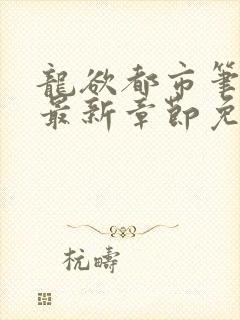 龍欲都市筆
最新章節免
杬疇